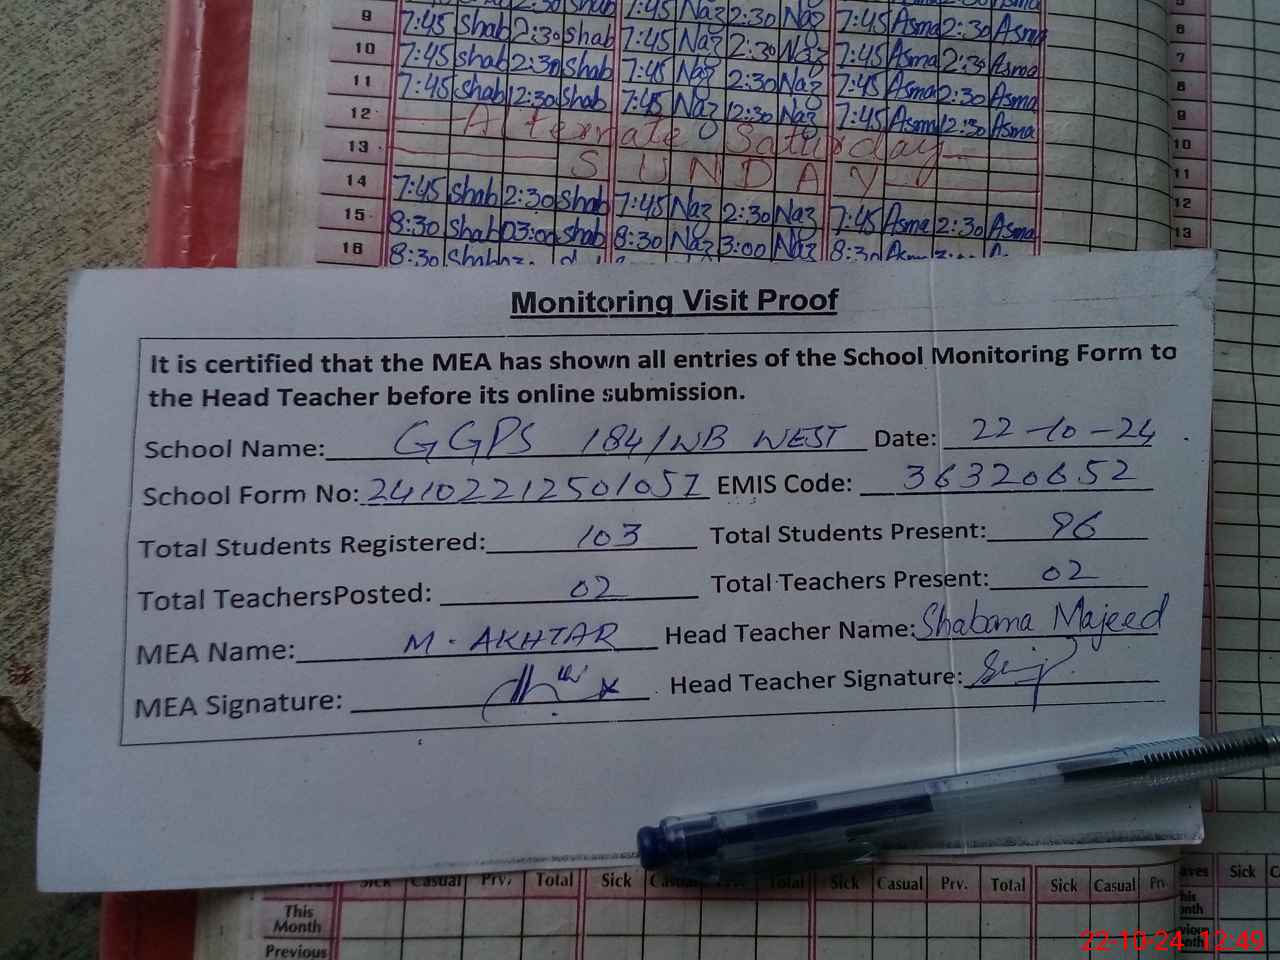 9 7:45 Shab 2:30 Shab 7:45 Naz 2:30 Naz 7:45 Asma 2:30 Asma 6
10 7:45 Shab 2:30 Shab 7:45 Naz 2:30 Naz 7:45 Asma 2:30 Asma 7
11 7:45 Shab 12:30 Shab 7:45 Naz 12:30 Naz 7:45 Asma 12:30 Asma 8
12 Alternate Saturday 9
13 SUNDAY 10
14 7:45 Shab 2:30 Shab 7:45 Naz 2:30 Naz 7:45 Asma 2:30 Asma 11
15 8:30 Shab 03:00 Shab 8:30 Naz 3:00 Naz 12
16 8:30 8:30 13
Monitoring Visit Proof
It is certified that the MEA has shown all entries of the School Monitoring Form to
the Head Teacher before its online submission.
School Name: GGPS 184/WB WEST Date: 22-10-24
School Form No: 24102212501057 EMIS Code: 36320652
Total Students Registered: 103 Total Students Present: 96
Total TeachersPosted: 02 Total Teachers Present: 02
MEA Name: M. AKHTAR Head Teacher Name: Shabana Majeed
MEA Signature: Head Teacher Signature:
Sick Casual Prv. Total Sick Total Sick Casual Prv. Total Sick Casual Sick
This Month
Previous
22-10-24 12:49